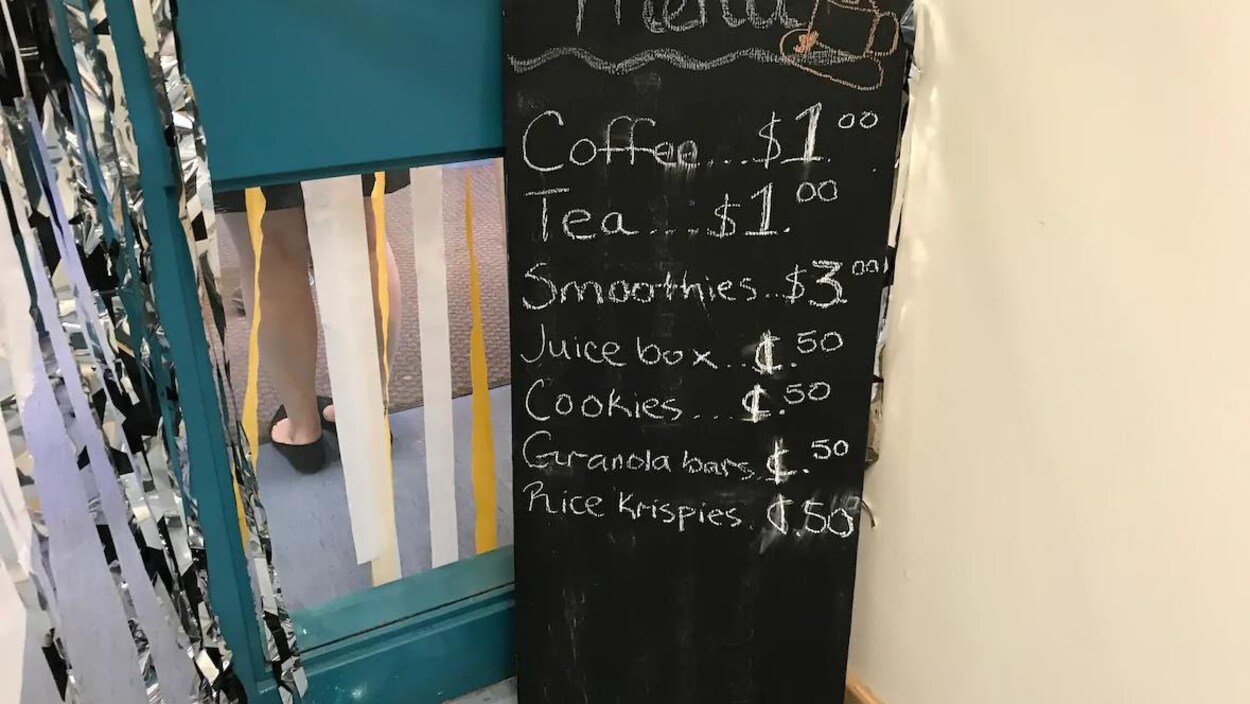 Menu
Coffee...$1.00
Tea....$1.00
Smoothies..$3.00
Juice box...¢.50
Cookies....¢.50
Granola bars..¢.50
Rice Krispies..¢.50